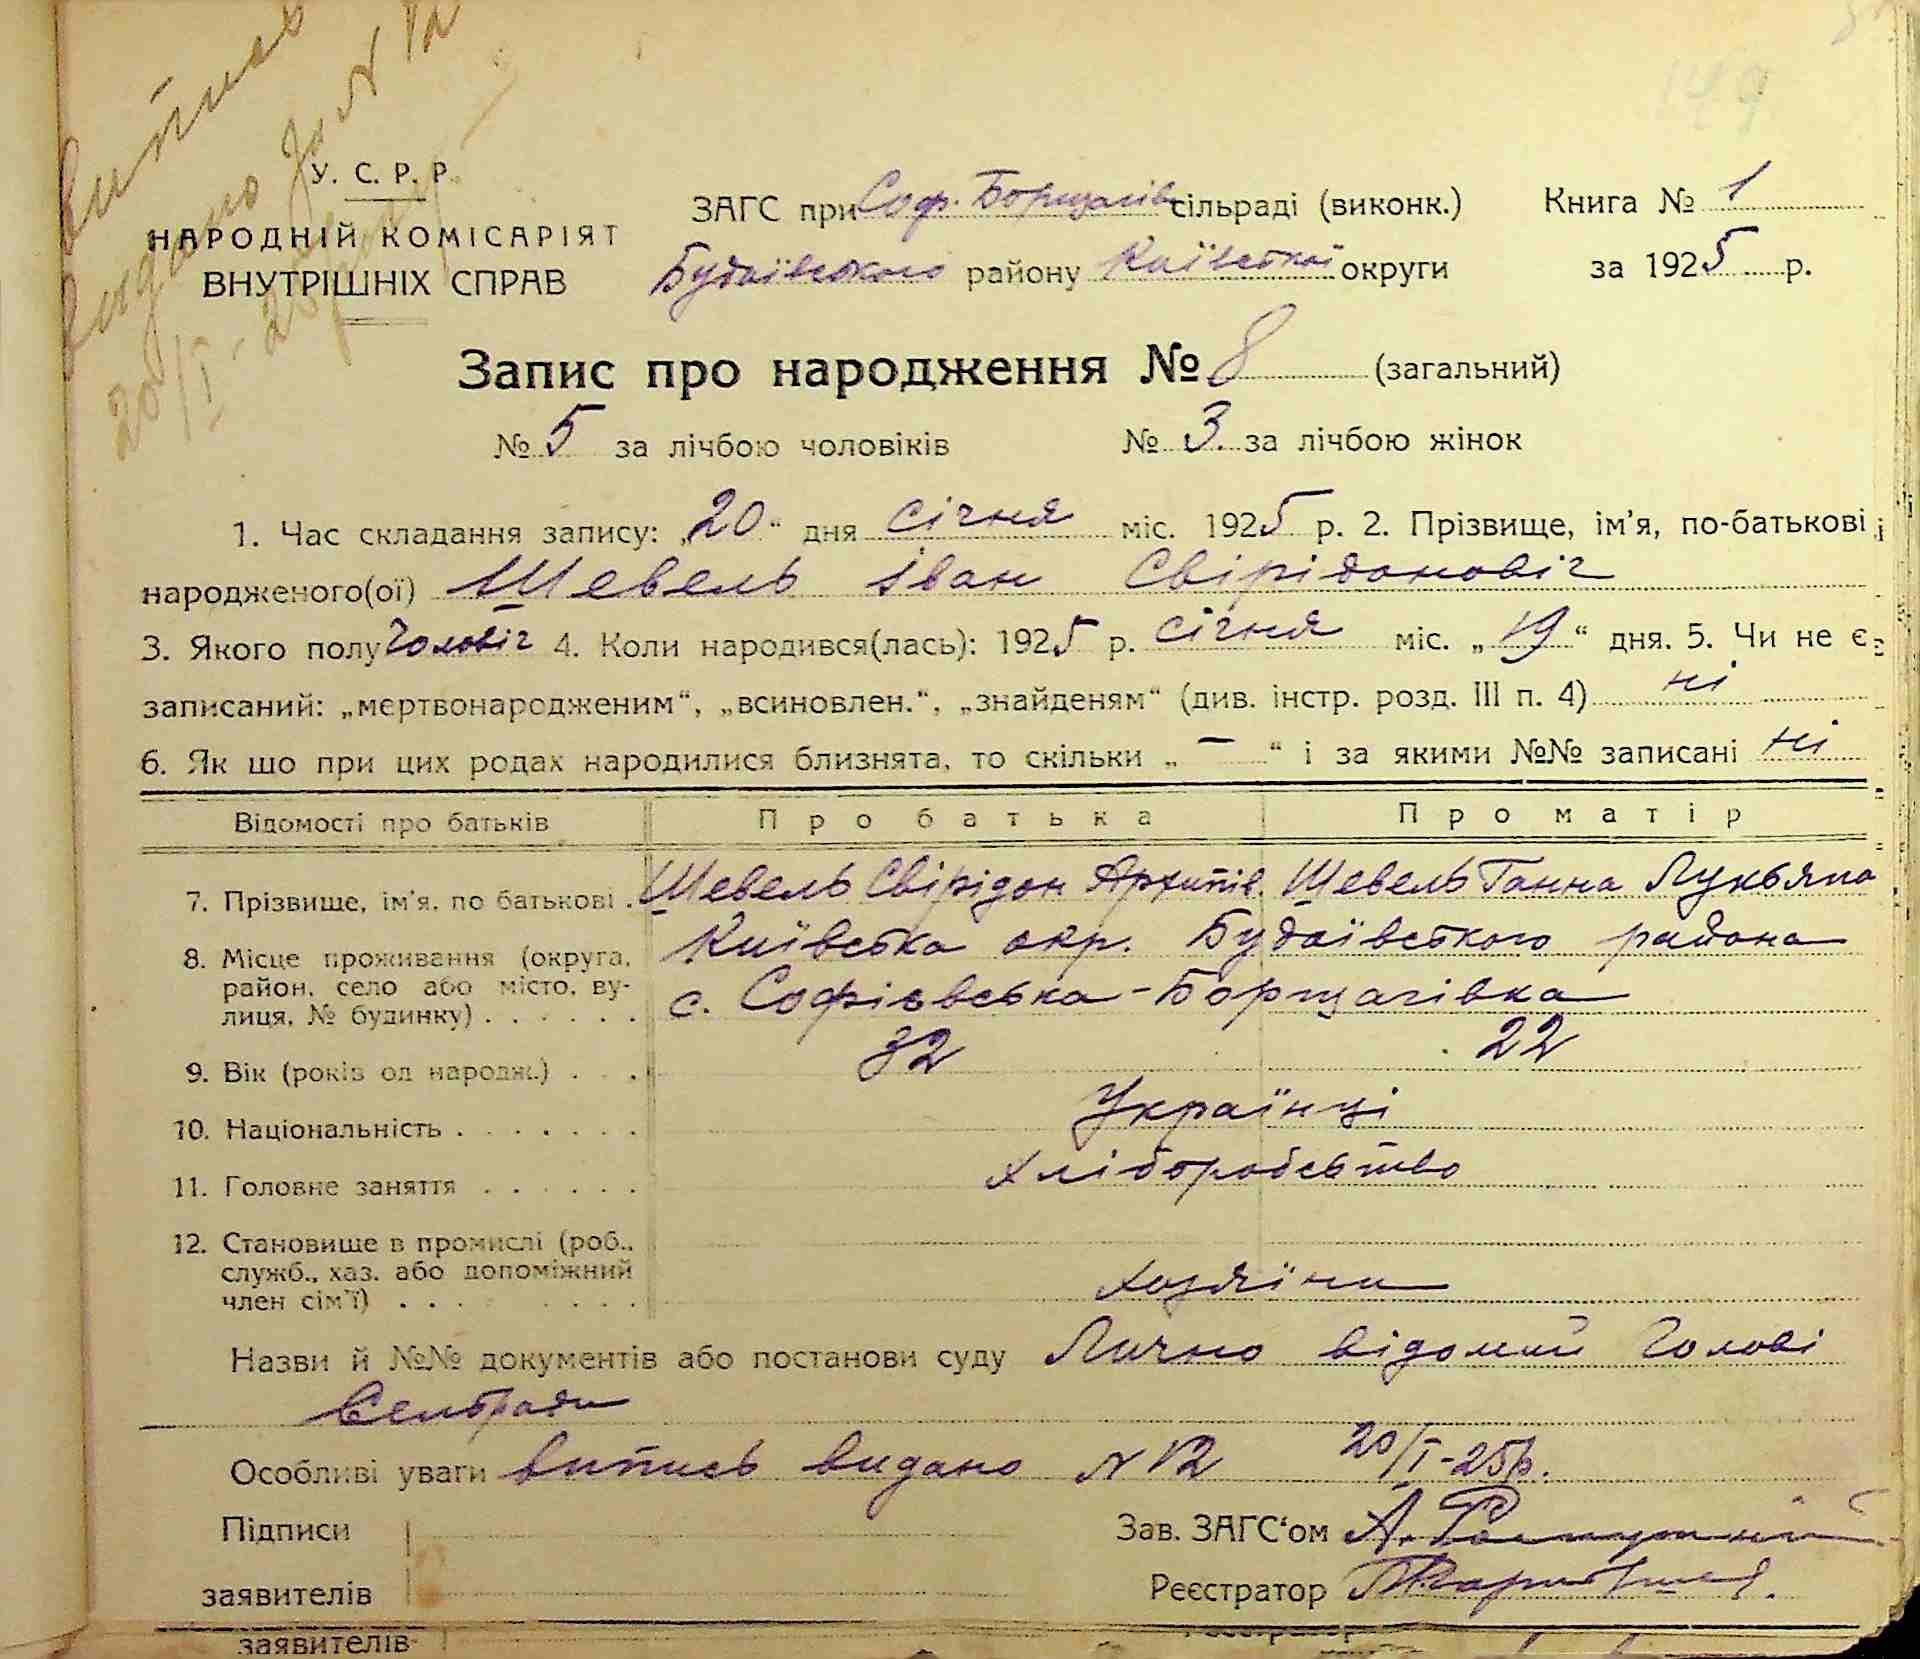 149
випись
видано за № 12
20/I-25 року
У. С. Р. Р.
НАРОДНІЙ КОМІСАРІЯТ
ВНУТРІШНІХ СПРАВ
ЗАГС при Соф. Борщагів сільраді (виконк.) Книга № 1
Будаївського району Київської округи за 1925 р.
Запис про народження № 8 (загальний)
№ 5 за лічбою чоловіків № 3. за лічбою жінок
1. Час складання запису: „20“ дня січня міс. 1925 р. 2. Прізвище, ім'я, по-батькові
народженого(ої) Шевель Іван Свірідановіч
3. Якого полу Чоловіч 4. Коли народився(лась): 1925 р. січня міс. „19“ дня. 5. Чи не є
записаний: „мертвонародженим“, „всиновлен.“, „знайденям“ (див. інстр. розд. III п. 4) ні
6. Як шо при цих родах народилися близнята, то скільки „ — “ і за якими №№ записані ні
Відомості про батьків Про батька Про матір
7. Прізвище, ім'я, по батькові . Шевель Свірідон Архипів. Шевель Ганна Лукьяна
8. Місце проживання (округа, Київська окр. Будаївського района
район, село або місто, ву-
лиця, № будинку) . . . . . . с. Софієвська-Борщагівка
9. Вік (років од народж.) . . . 32 22
10. Національність . . . . . . . Українці
11. Головне заняття . . . . . . Хліборобство
12. Становище в промислі (роб.,
служб., хаз. або допоміжний
член сім'ї) . . . . . . . . Хозяїни
Назви й №№ документів або постанови суду Лично відомий Голові
Сельради
Особливі уваги випись видано № 12 20/I-25р.
Підписи Зав. ЗАГС'ом А.
заявителів Реєстратор
заявителів